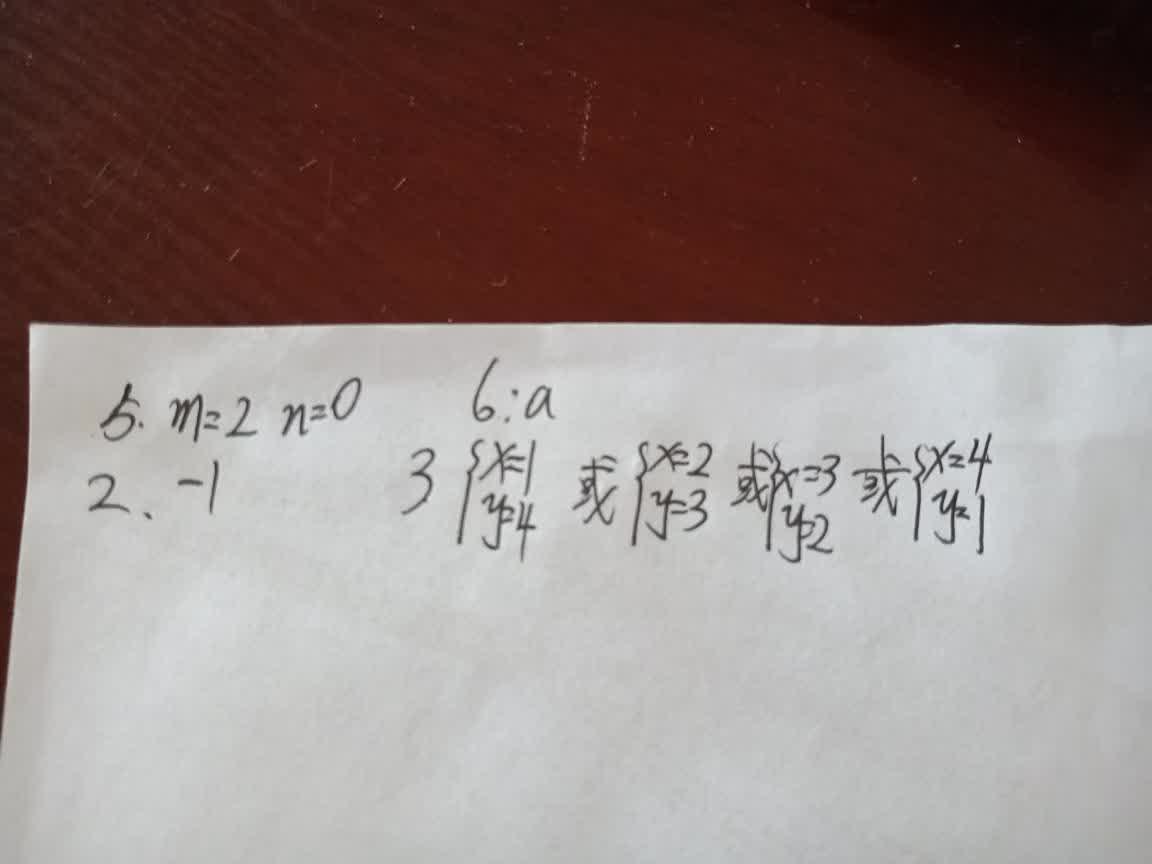 5. m=2 n=0 6:a
2、-1 3 {x=1 y=4 或 {x=2 y=3 或 {x=3 y=2 或 {x=4 y=1